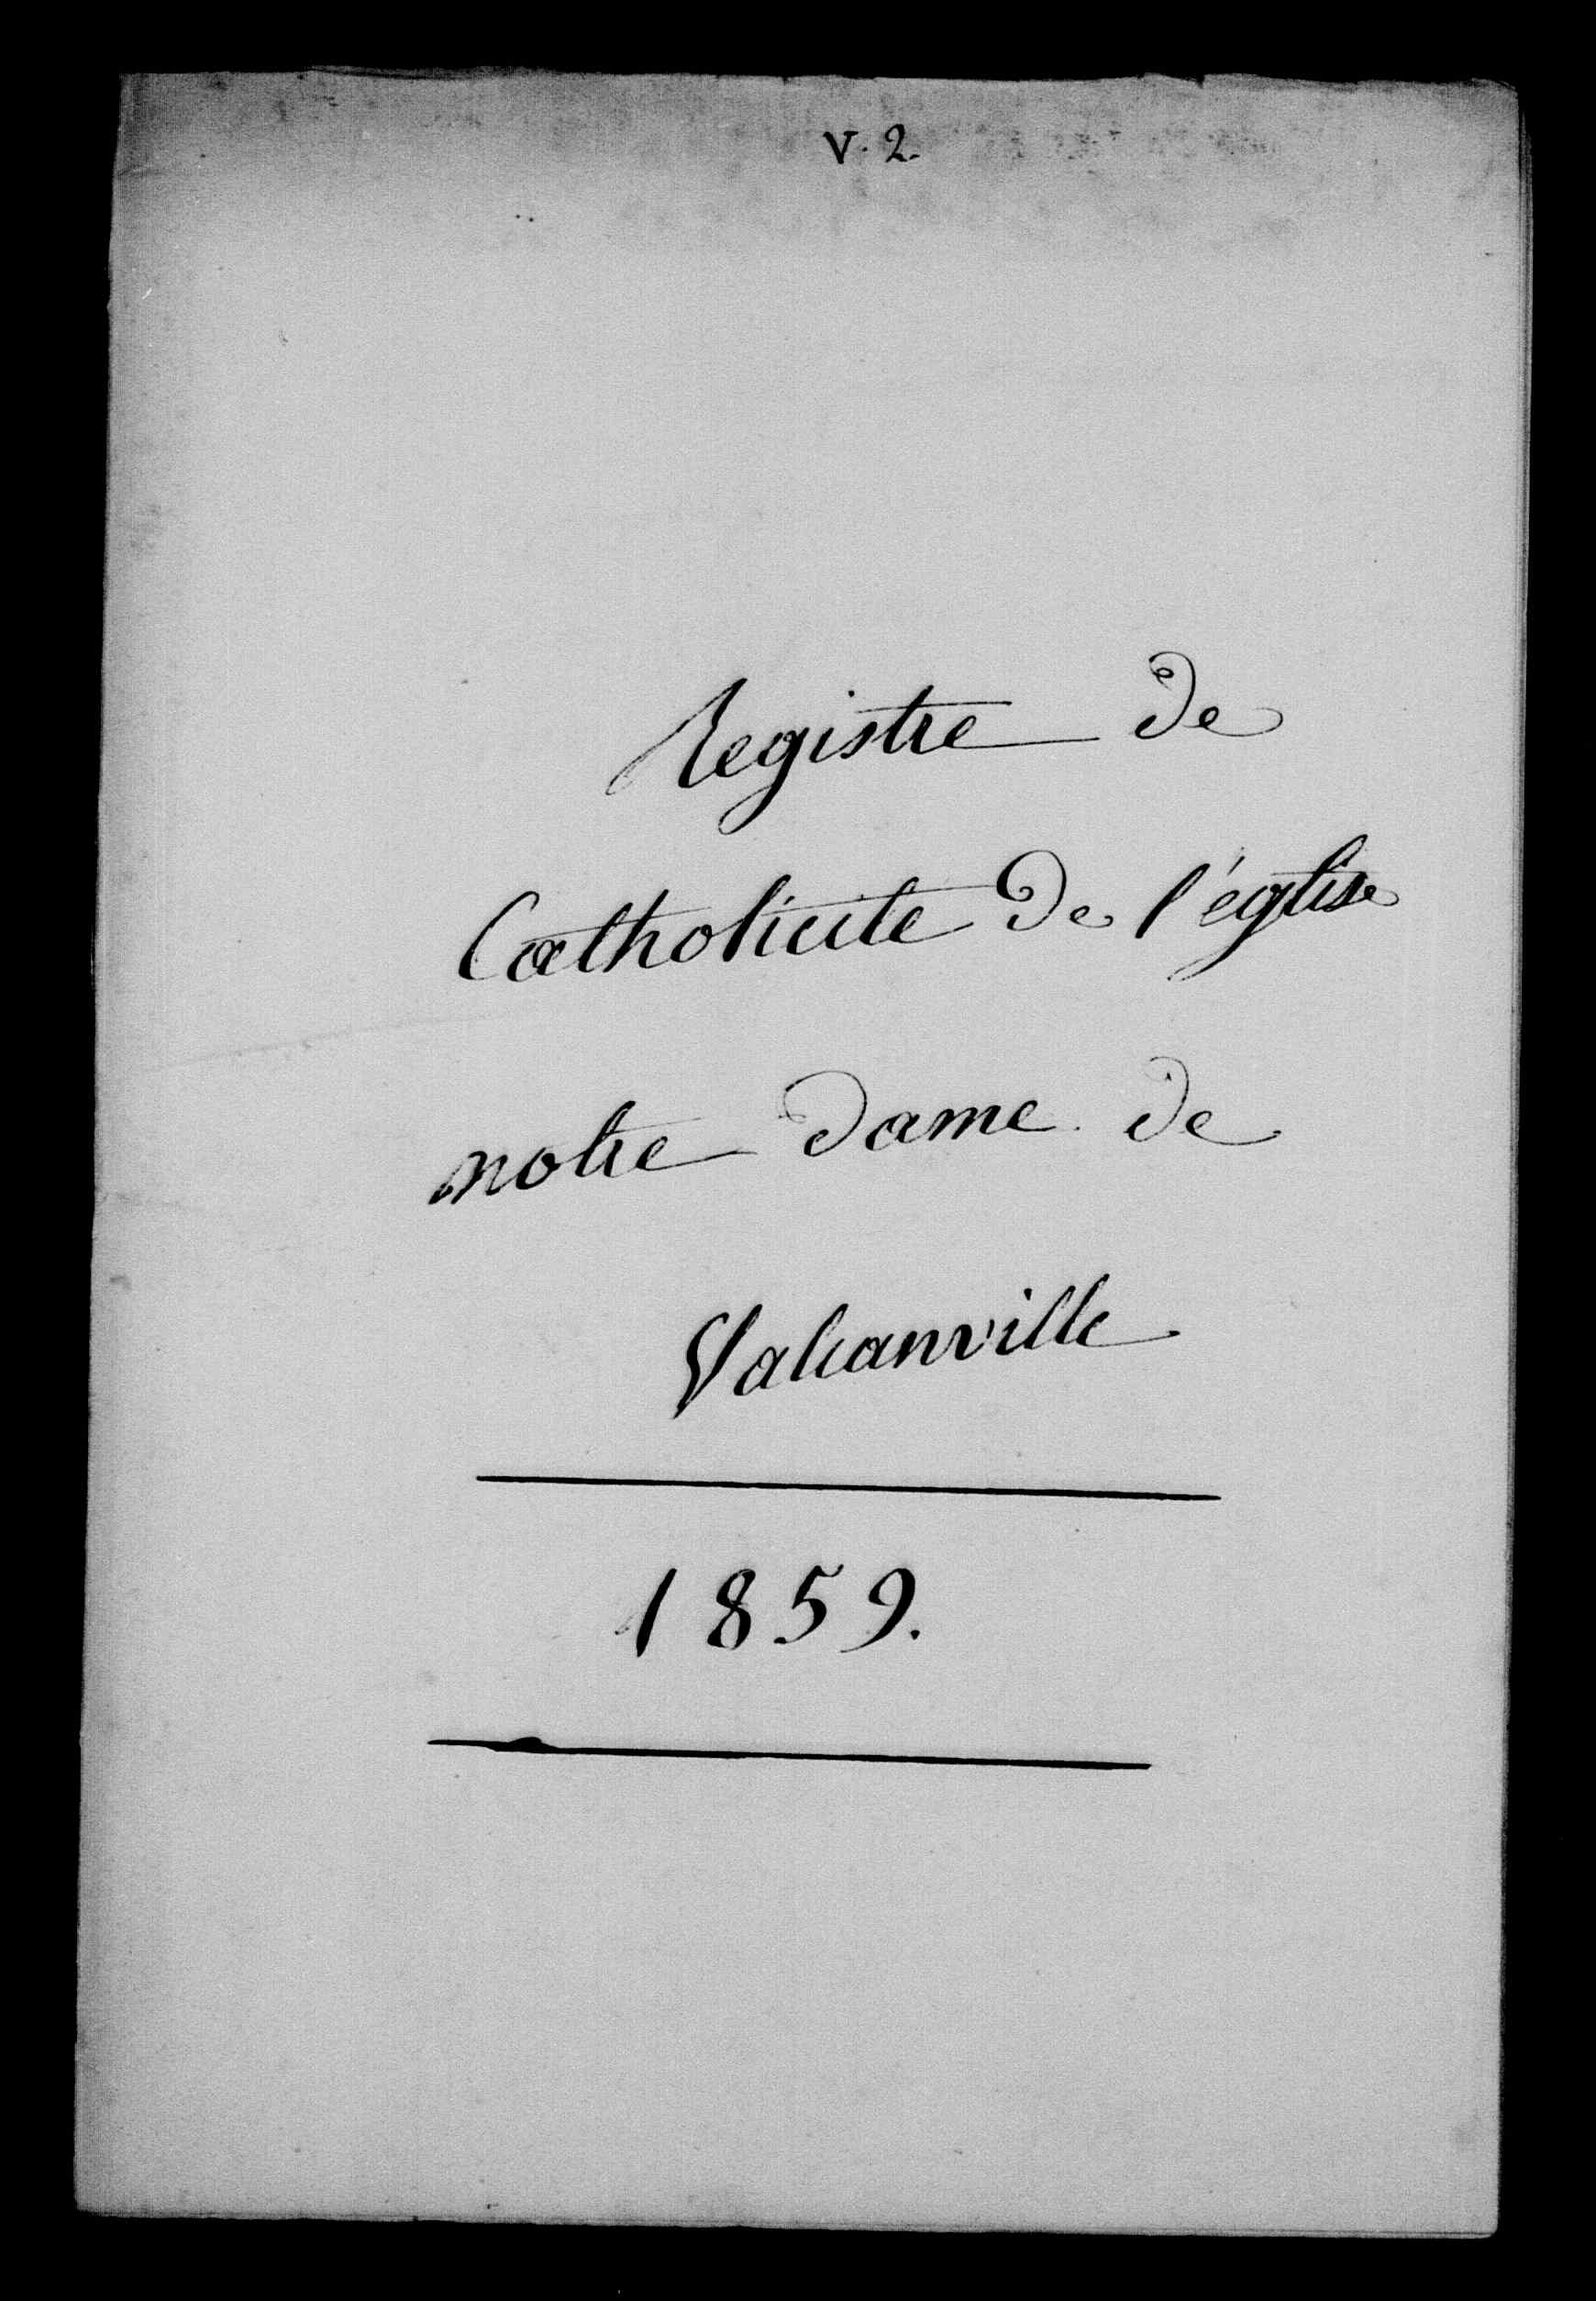 V. 2.
Registre de
Catholicite de l'église
notre dame de
Valcanville
1859.